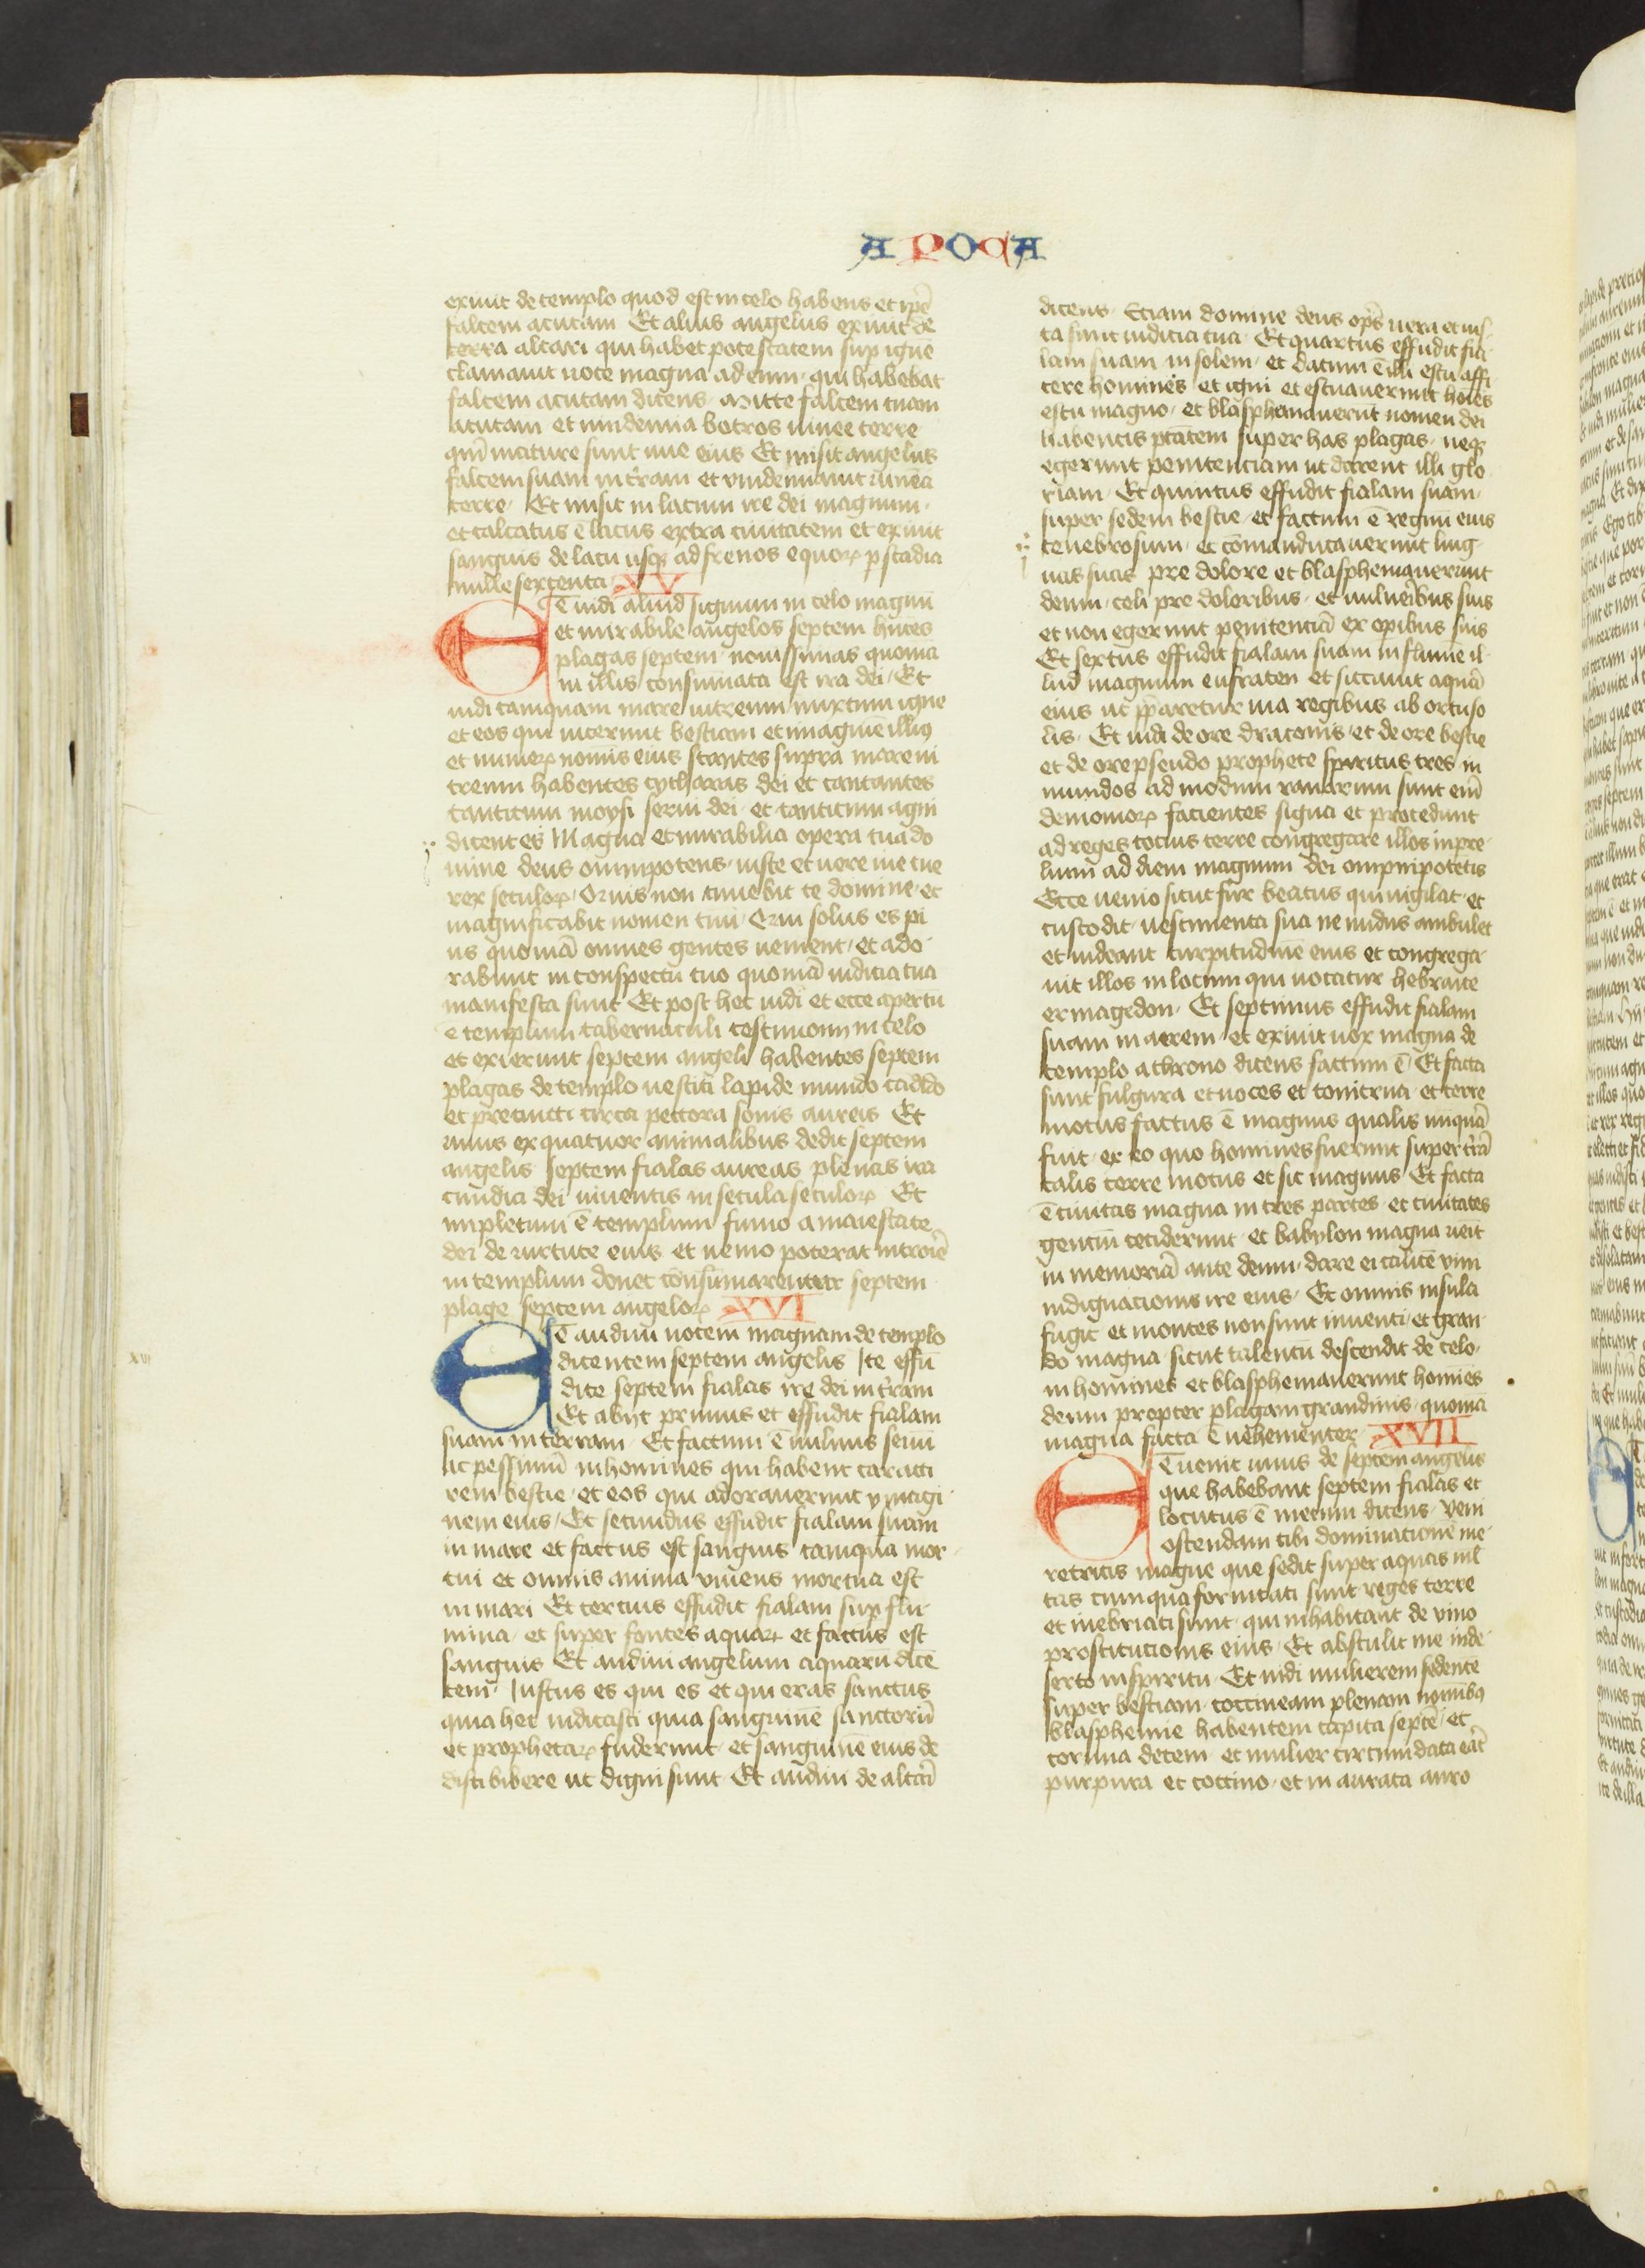 APOCA
exiuit de templo quod est in celo habens et ip̄e
falcem acutam Et alius angelus exiuit de
terra altari qui habet potestatem sup ignē
clamauit uoce magna ad eum · qui habebat
falcem acutam dicens · Mitte falcem tuam
acutam et uindemia botros uinee terre
qm̄ mature sunt uue eius Et misit angelus
falcem suam in tr̄am et vindemiauit uineā
terre · Et misit in lacum ire dei magnum ·
et calcatus ē lacus extra ciuitatem et exiuit
sanguis de lacu usq; ad frenos equoꝝ p stadia
mille sexcenta XV
Et uidi aliud signum in celo magnū
et mirabile angelos septem hn̄tes
plagas septem nouissimas quoniā
in illis consumata est ira dei · Et
uidi tamquam mare uitreum mixtum igne
et eos qui uicerunt bestiam et imaginē illiꝰ
et numeꝝ nomis eius stantes supra mare ui
treum habentes cytharas dei et cantantes
canticum moysi serui dei · et canticum agni
dicentes Magna et mirabilia opera tua do
mine deus omnipotens · iuste et uere uie tue
rex seculoꝝ · Quis non timebit te domine · et
magnificabit nomen tuū · Quia solus es pi
us quoniā omnes gentes uenient · et ado
rabunt in conspectu tuo quoniā iudicia tua
manifesta sunt Et post hec uidi et ecce apertū
ē templum tabernaculi testimonii in celo
et exierunt septem angeli habentes septem
plagas de templo uestiti lapide mundo cādido
et precincti circa pectora sonis aureis Et
unus ex quatuor animalibus dedit septem
angelis septem fialas aureas plenas ira
cundia dei uiuentis in secula seculoꝝ Et
impletum ē templum fumo a maiestate
dei de uirtute eius et nemo poterat introire
in templum donec consumarentur septem
plage septem angeloꝝ XVI
Et audiui uocem magnam de templo
dicentem septem angelis Ite effū
dite septem fialas ire dei in tr̄am
Et abijt primus et effudit fialam
suam in terram · Et factum ē uulnus seuū
ac pessimū in homines qui habent caracte
rem bestie · et eos qui adorauerunt ymagi
nem eius · Et secundus effudit fialam suam
in mare et factus est sanguis tamquā mor
tui et omnis anima viuens mortua est
in mari Et tercius effudit fialam sup flu
mina · et super fontes aquaꝝ et factus est
sanguis Et audiui angelum aquarū dicē
tem · Iustus es qui es et qui eras sanctus
quia hec iudicasti quia sanguinē sanctorū
et prophetaꝝ fuderunt · et sanguinē eius de
disti bibere ut digni sunt Et audiui de altari
dicens · Etiam domine deus ops̄ uera et ius
ta sunt iudicia tua · Et quartus effudit fia
lam suam in solem · et datum ē illi estu affi
cere homines et igni et estuauerunt hoīes
estu magno · et blasphemauerūt nomen dei
habentis ptātem super has plagas · neq;
egerunt penitenciam ut darent illi glo
riam · Et quintus effudit fialam suam ·
super sedem bestie · et factum ē regnū eius
tenebrosum · et cōmanducauerunt ling
uas suas pre dolore et blasphemauerunt
deum · celi pre doloribus · et uulneribus suis
et non egerunt penitenciā ex opibus suis
Et sextus effudit fialam suam in flumē il
lud magnum eufraten et siccauit aquā
eius ut p̄pararetur uia regibus ab ortu so
lis · Et uidi de ore draconis et de ore bestie
et de ore pseudo prophete spiritus tres in
mundos ad modum ranarum sunt eim̄
demonioꝝ facientes signa et procedunt
ad reges tocius terre congregare illos in pre
lium ad diem magnum dei omnipotētis
Ecce uenio sicut fur beatus qui uigilat · et
custodit · uestimenta sua ne nudus ambulet
et uideant turpitudinē eius et congrega
uit illos in locum qui uocatur hebraice
ermagedon · Et septimus effudit fialam
suam in aerem · et exiuit uox magna de
templo a throno dicens factum ē Et facta
sunt fulgura et uoces et tonitrua et terre
motus factus ē magnus qualis nūquā
fuit · ex eo quo homines fuerunt super tr̄ā
talis terre motus et sic magnus Et facta
ē ciuitas magna in tres partes · et ciuitates
gentiū ceciderunt · et babylon magna uēit
in memoriā ante deum · dare ei calicē vini
indignacionis ire eius · Et omnis insula
fugit et montes non sunt inuenti · et gran
do magna sicut talentū descendit de celo ·
in homines et blasphemauerunt homines
deum propter plagam grandinis · quoniā
magna facta ē uehementer · XVII
Et uenit unus de septem angelis
que habebant septem fialas et
locutus ē mecum dicens · Veni
ostendam tibi dominacionē me
retricis magne que sedit super aquas ml̄
tas cum qua fornicati sunt reges terre
et inebriati sunt · qui inhabitant de vino
prostitucionis eius · Et abstulit me inde
serto in spiritu · Et uidi mulierem sedentē
super bestiam · coccineam plenam nominibꝰ
blasphemie habentem capita septē · et
cornua decem · et mulier circumdata erāt
purpura et coccino · et in aurata auro